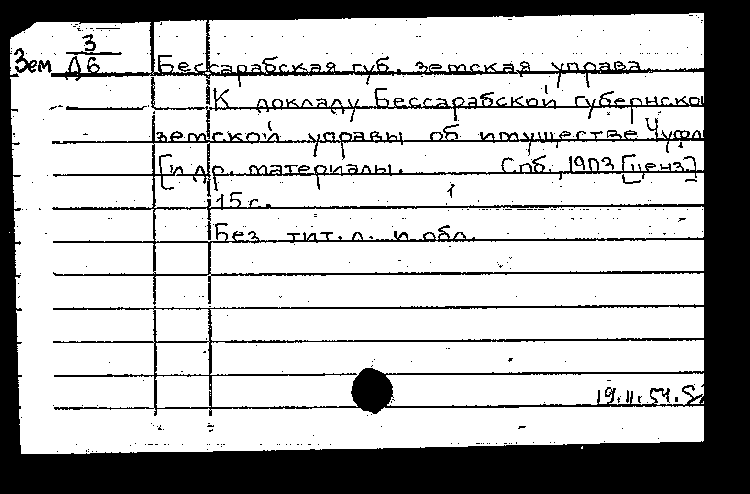 3
Зем Д6 Бессарабская губ. земская управа.
К докладу Бессарабской губернско
земской управы об имуществе Чуфл
[и др. материалы. Спб., 1903 [ценз.]
15 с.
Без тит. л. и обл.
19.II.54.